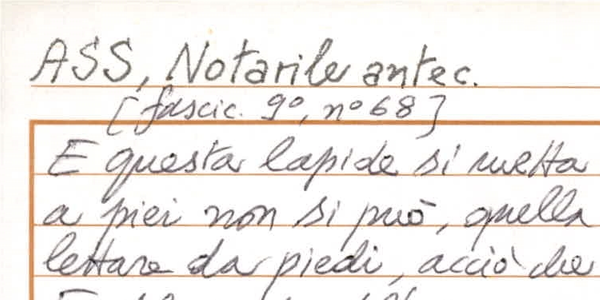 ASS, Notarile antec.
[fascic. 9º, nº 68]
E questa lapide si metta
a piei non si può, quella
lettare da piedi, acciò che